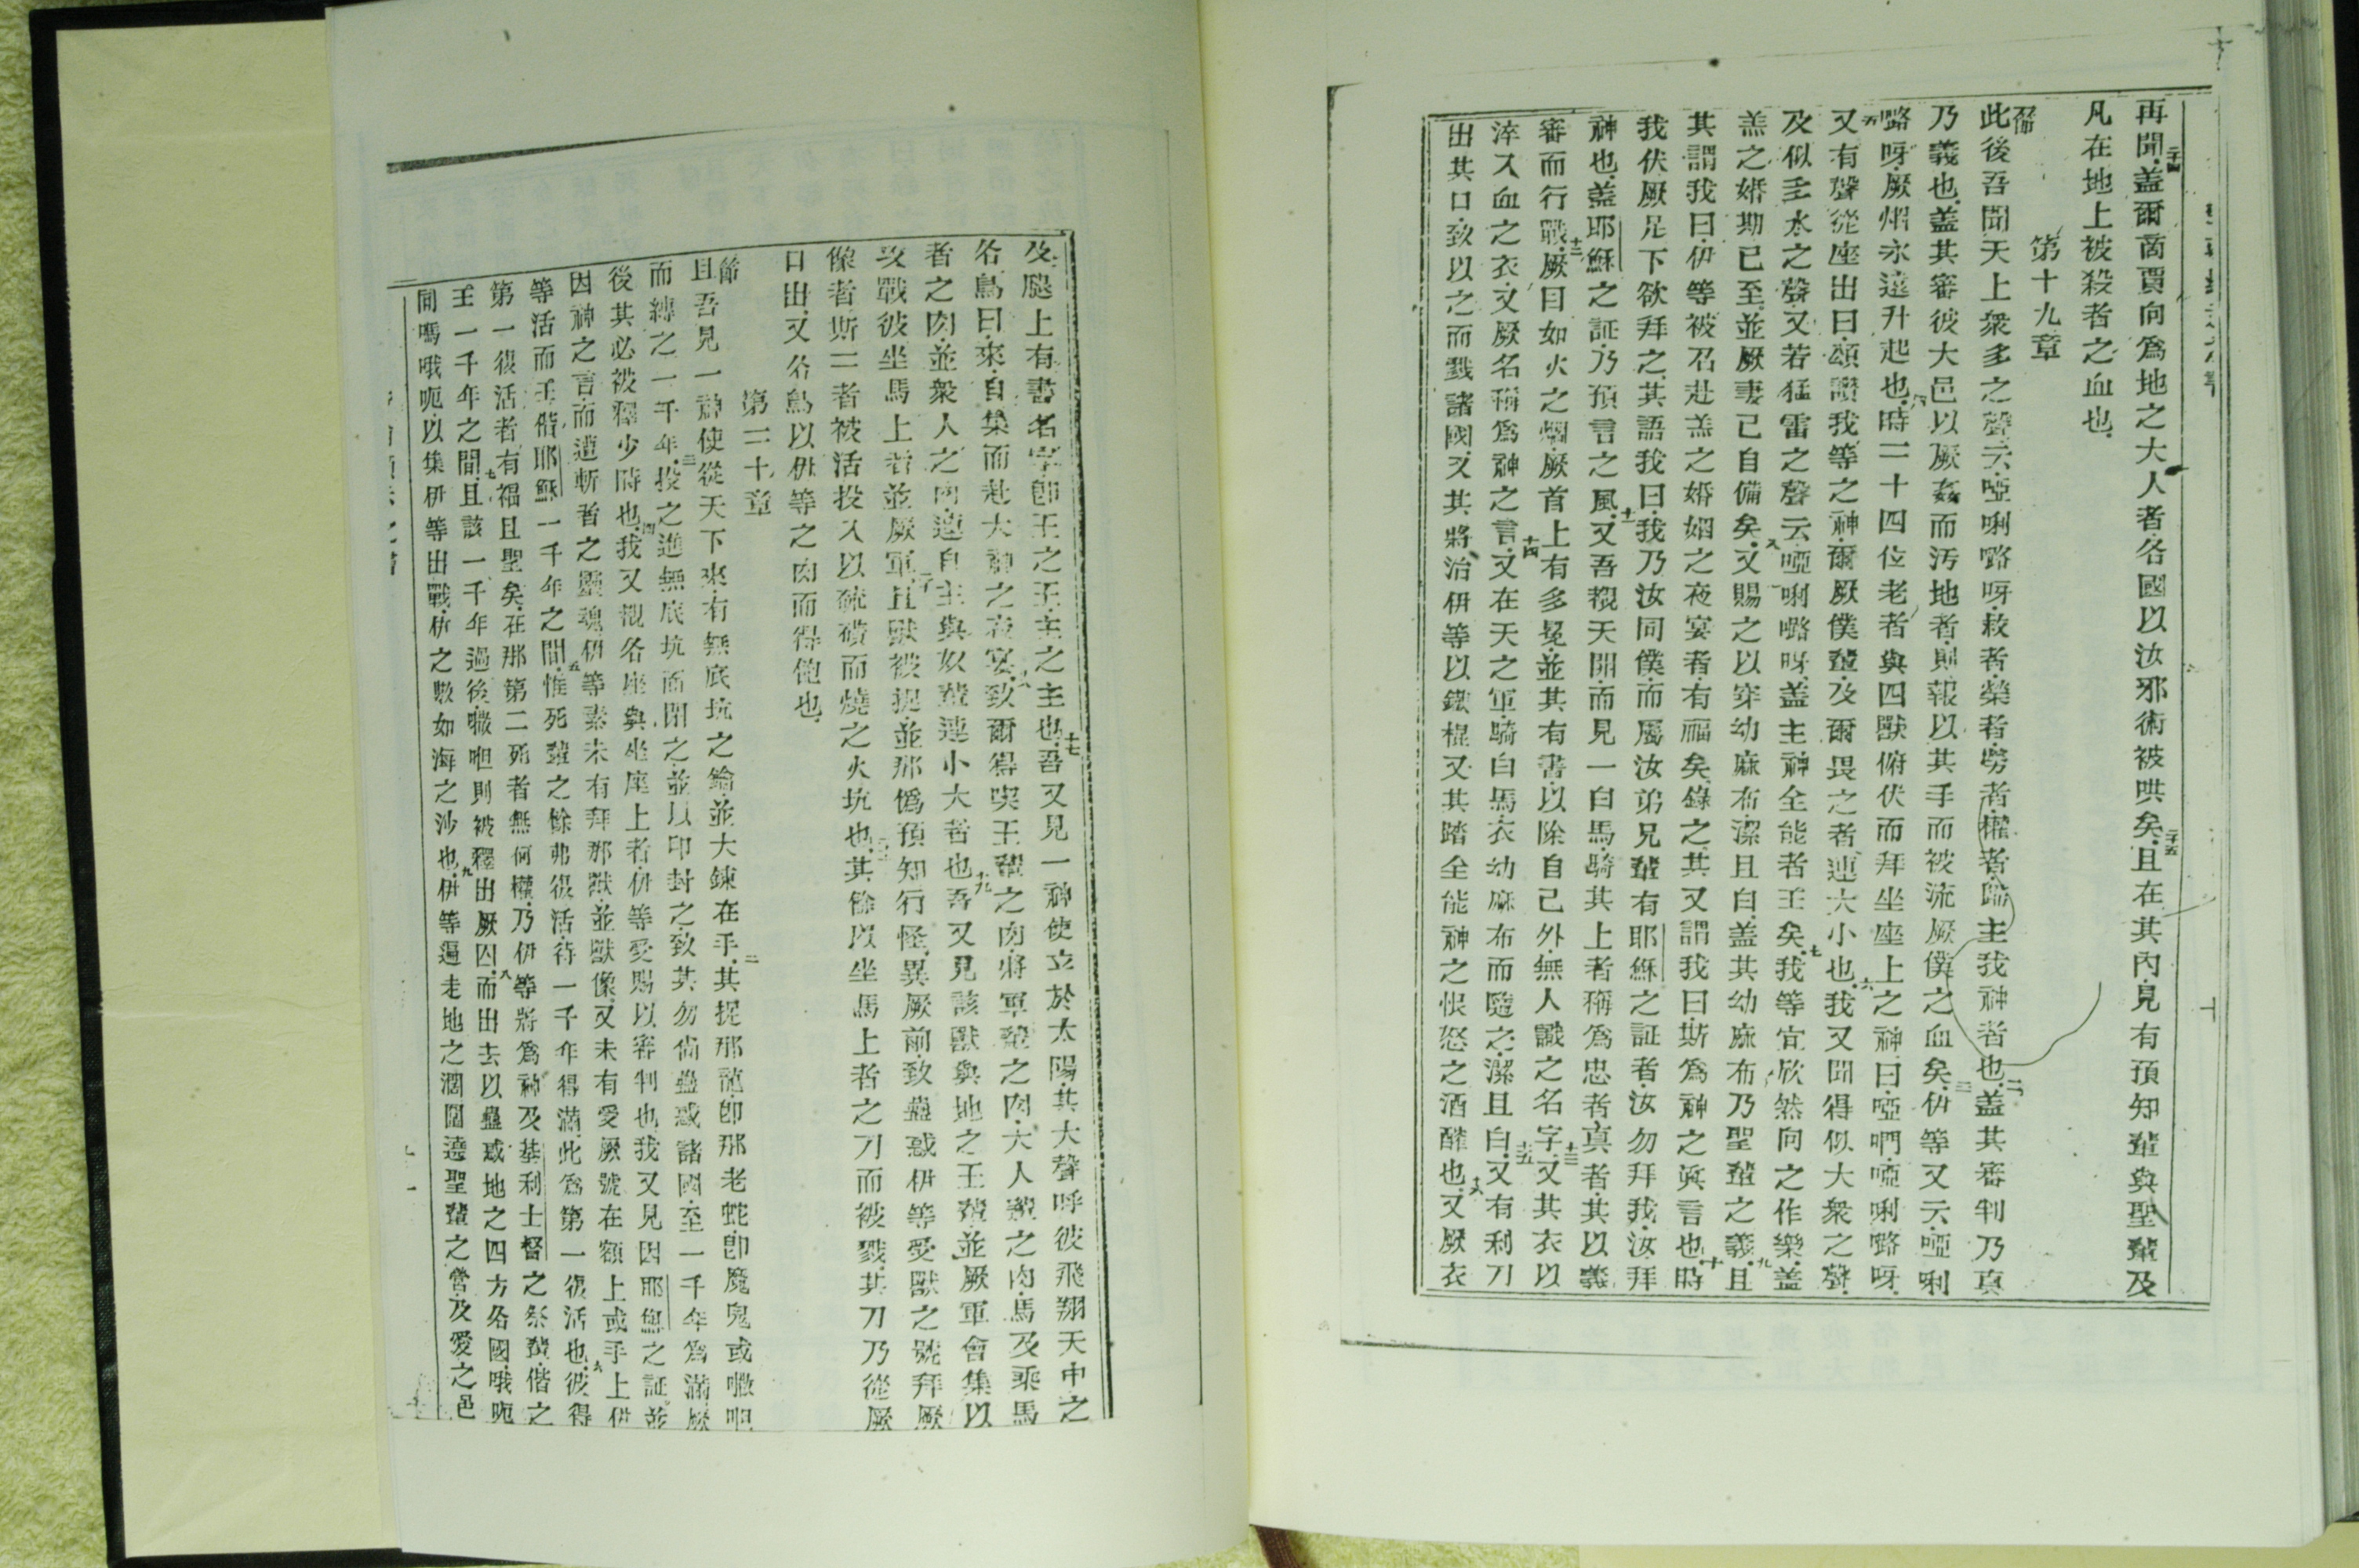 再聞盖爾啇賈向爲地之大人者各國以汝邪術被哄矣且在其內見有預知輩與聖輩及
二十四
二十五
凡在地上被殺者之血也
第十九章
一節
此後吾聞天上衆多之聲云啞唎嚕呀救者榮者勞者權者歸主我神者也盖其審判乃真
二
乃義也盖其審彼大邑以厥姦而污地者則報以其手而被流厥僕之血矣伊等又云啞唎
三
嚕呀厥烟永遠升起也時二十四位老者與四獸俯伏而拜坐座上之神曰啞們啞唎嚕呀
四
五
又有聲從座出曰頌讚我等之神爾厥僕輩及爾畏之者連大小也我又聞得似大衆之聲
六
及似多水之聲又若猛雷之聲云啞唎嚕呀盖主神全能者王矣我等宜欣然向之作樂盖
七
羔之婚期已至並厥妻己自備矣又賜之以穿幼麻布潔且白盖其幼麻布乃聖輩之義且
八
九
其謂我曰伊等被召赴羔之婚姻之夜宴者有福矣錄之其又謂我曰斯爲神之眞言也時
十
我伏厥足下欲拜之其語我曰我乃汝同僕而屬汝弟兄輩有耶穌之証者汝勿拜我汝拜
神也盖耶穌之証乃預言之風又吾覩天開而見一白馬騎其上者稱爲忠者真者其以義
十一
審而行戰厥目如火之烟厥首上有多冕並其有書以除自己外無人識之名字又其衣以
十二
十三
淬入血之衣又厥名稱爲神之言又在天之軍騎白馬衣幼麻布而隨之潔且白又有利刀
十四
十五
出其口致以之而戮諸國又其將治伊等以鐵棍又其踏全能神之恨怒之酒醡也又厥衣
十六
及腿上有書名字卽王之王主之主也吾又見一神使立於太陽其大聲呼彼飛翔天中之
十七
各鳥曰來自集而赴大神之夜宴致爾得喫王輩之肉將軍輩之肉大人輩之肉馬及乘馬
十八
者之肉並衆人之肉連自主與奴輩連小大者也吾又見該獸與地之王輩並厥軍會集以
十九
攻戰彼坐馬上者並厥軍且獸被捉並那僞預知行怪異厥前致蠱惑伊等受獸之號拜厥
二十
像者斯二者被活投入以硫磺而燒之火坑也其餘以坐馬上者之刀而被戮其刀乃從厥
口出又各鳥以伊等之肉而得飽也
第二十章
節
且吾見一神使從天下來有無底坑之鑰並大鍊在手其捉那龍卽那老蛇卽魔鬼或㘔呾
二
而縛之一千年投之進無底坑而閉之並以印封之致其勿尙蠱惑諸國至一千年爲滿厥
三
後其必被釋少時也我又覩各座與坐座上者伊等受賜以審判也我又見因耶穌之証並
四
因神之言而遭斬者之靈魂伊等素未有拜那獸並獸像又未有受厥號在額上或手上伊
等活而王偕耶穌一千年之間惟死輩之餘弗復活待一千年得滿此爲第一復活也彼得
五
六
第一復活者有福且聖矣在那第二死者無何權乃伊等將爲神及基利士督之祭輩偕之
王一千年之間且該一千年過後㘔呾則被釋出厥囚而出去以蠱惑地之四方各國哦呃
七
八
同嗎哦呃以集伊等出戰伊之數如海之沙也伊等逼走地之濶圍遶聖輩之營及愛之邑
九